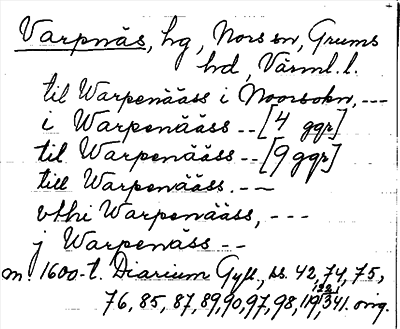 Varpnäs, hg, Nors sn, Grums
hd, Värml. l.
til Warpenääss i Noorsokn, ---
i Warpenääss -- [4 ggr]
til Warpenääss -- [9 ggr]
till Warpenääss. --
vthi Warpenääss, ---
j Warpenäss --
m. 1600-t. Diarium Gyll., ss. 42, 74, 75,
76, 85, 87, 89, 90, 97, 98, 119, 122, 341. orig.